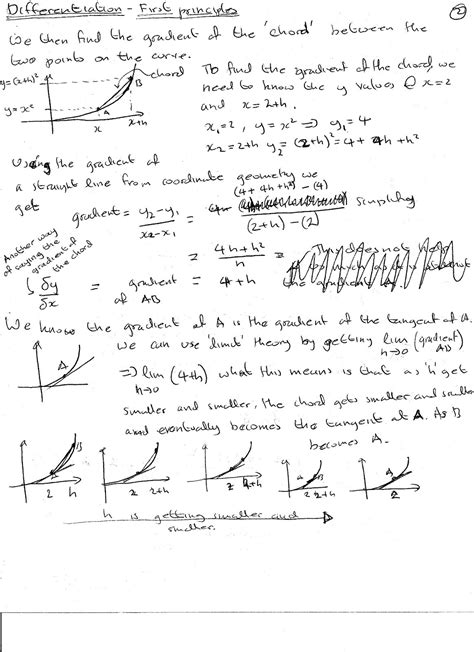 Differentiation - First principles
②
We then find the gradient of the 'chord' between the
two points on the curve.
y=(x+h)²
chord
B
y=x²
A
x
x+h
To find the gradient of the chord, we
need to know the y values @ x=2
and x=2+h.
x₁=2, y=x² ⇒ y₁=4
x₂=2+h y₂=(2+h)²=4+4h+h²
Using the gradient of
a straight line from coordinate geometry we
get gradient = y₂-y₁ / x₂-x₁ = (4+4h+h²)-(4) / (2+h)-(2) simplifying
Another way
of saying the
gradient of
the chord
= 4h+h² / h =
δy / δx = gradient of AB = 4+h
We know the gradient at A is the gradient of the tangent at A.
A
We can use 'limit' theory by getting lim h→0 (gradient AB)
⇒ lim h→0 (4+h) what this means is that as 'h' get
smaller and smaller, the chord gets smaller and smaller
and eventually becomes the tangent at A. As B
becomes A.
B
2 h
2 2+h
2 2+h
A
2 2+h
A
2
h is getting smaller and
smaller.